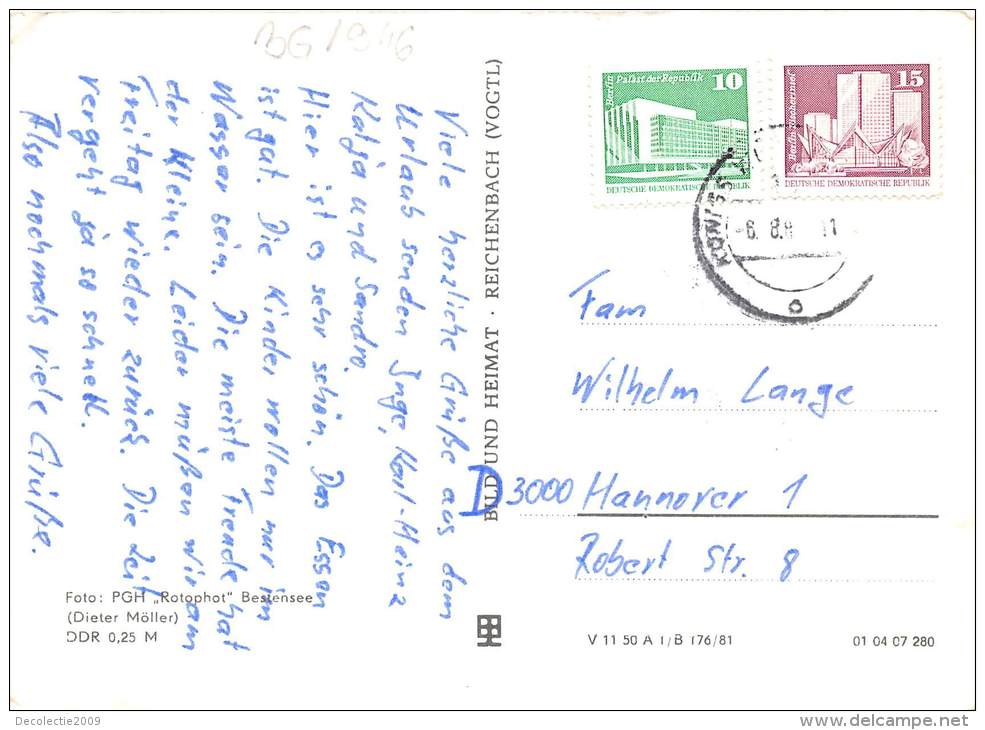 BG/946
Viele herzliche Grüße aus dem
Urlaub senden Inge, Karl-Heinz
Katja und Sandro.
Hier ist es sehr schön. Das Essen
ist gut. Die Kinder wollen nur im
Wasser sein. Die meiste Freude hat
der Kleine. Leider müßen wir am
Freitag wieder zurück. Die Zeit
vergeht ja so schnell.
Also nochmals viele Grüße.
Foto: PGH „Rotophot" Bestensee
(Dieter Möller)
DDR 0,25 M
BILD UND HEIMAT · REICHENBACH (VOGTL)
Berlin Palast der Republik
10
DEUTSCHE DEMOKRATISCHE REPUBLIK
Berlin-Fischerinsel
15
DEUTSCHE DEMOKRATISCHE REPUBLIK
-6. 8.8 11
Fam
Wilhelm Lange
D 3000 Hannover 1
Robert Str. 8
V 11 50 A 1/B 176/81
01 04 07 280
Decolectie2009
www.delcampe.net